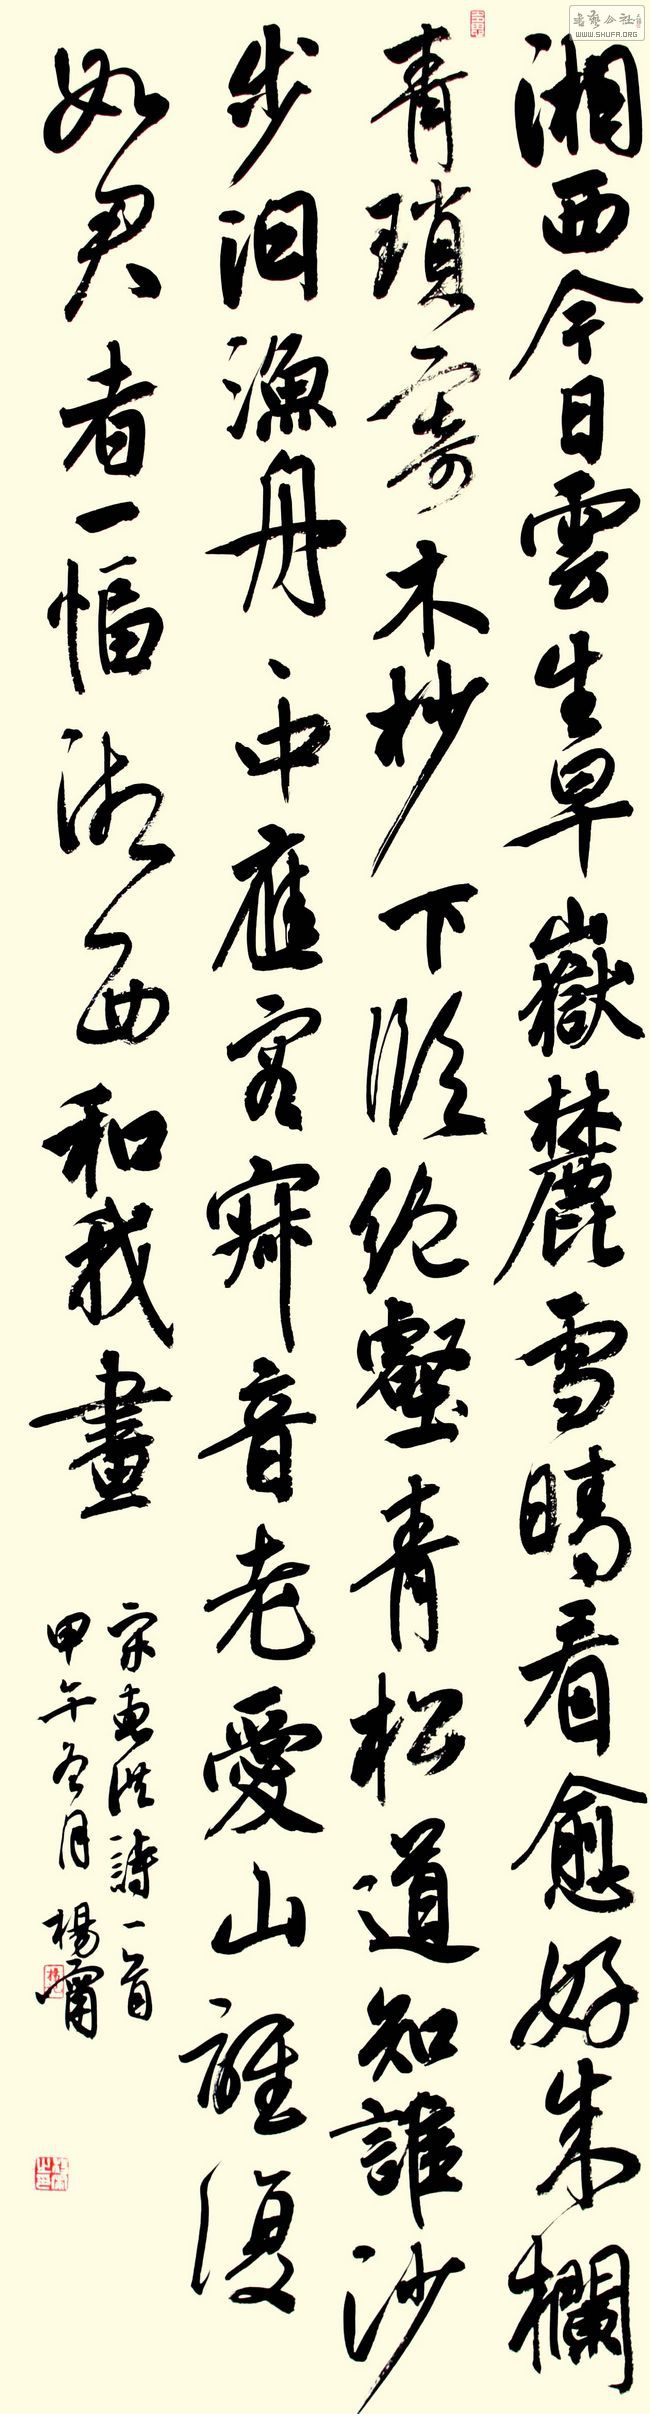 湘西今日雲生早嶽麓雪晴看愈好朱欄
青瑣寄木杪下臨絕壑青松道知誰沙
步泊漁舟、中應容寂音老愛山誰復
如君者一幅湘西和我畫
宋惠洪詩一首
甲午冬月楊甯
書藝公社
WWW.SHUFA.ORG